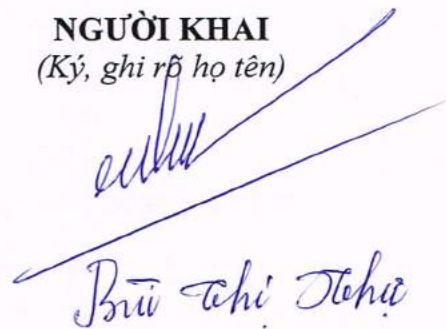 NGƯỜI KHAI
(Ký, ghi rõ họ tên)
Bùi Thị Như